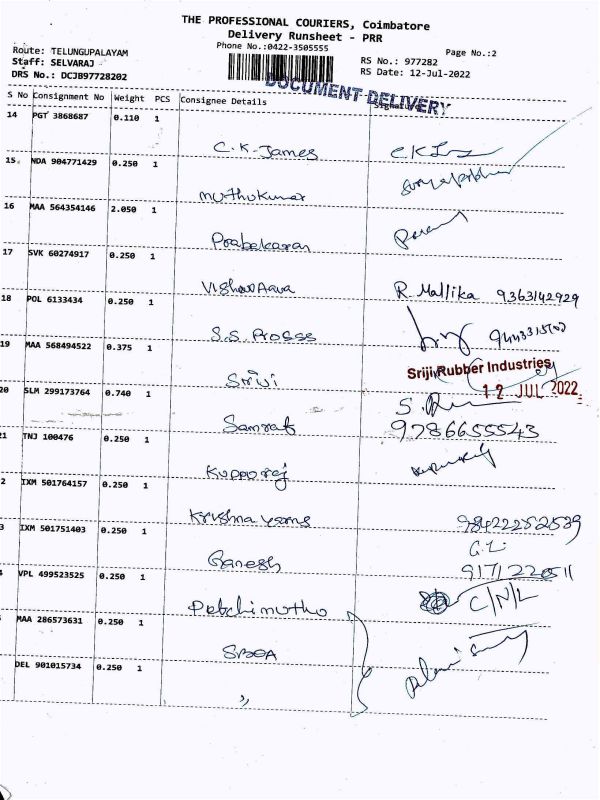 THE PROFESSIONAL COURIERS, Coimbatore
Delivery Runsheet - PRR
Phone No.:0422-3505555
Page No.:2
Route: TELUNGUPALAYAM
Staff: SELVARAJ
RS No.: 977282
DRS No.: DCJB97728202
RS Date: 12-Jul-2022
DOCUMENT DELIVERY
S No Consignment No Weight PCS Consignee Details Signature
14 PGT 3868687 0.110 1
C.K. James
15. NDA 904771429 0.250 1
muthukumar
16 MAA 564354146 2.050 1
Prabakaran
17 SVK 60274917 0.250 1
R. Mallika 9363142929
18 POL 6133434 0.250 1
S.S. Process
19 MAA 568494522 0.375 1
Sriji Rubber Industries
12 JUL 2022
Sriji
20 SLM 299173764 0.740 1
Samrat 9786655543
21 TNJ 100476 0.250 1
Kuppuraj
2 IXM 501764157 0.250 1
98422252539
3 IXM 501751403 0.250 1
Ganesh
VPL 499523525 0.250 1
Petchimuthu C/N/L
MAA 286573631 0.250 1
DEL 901015734 0.250 1
"